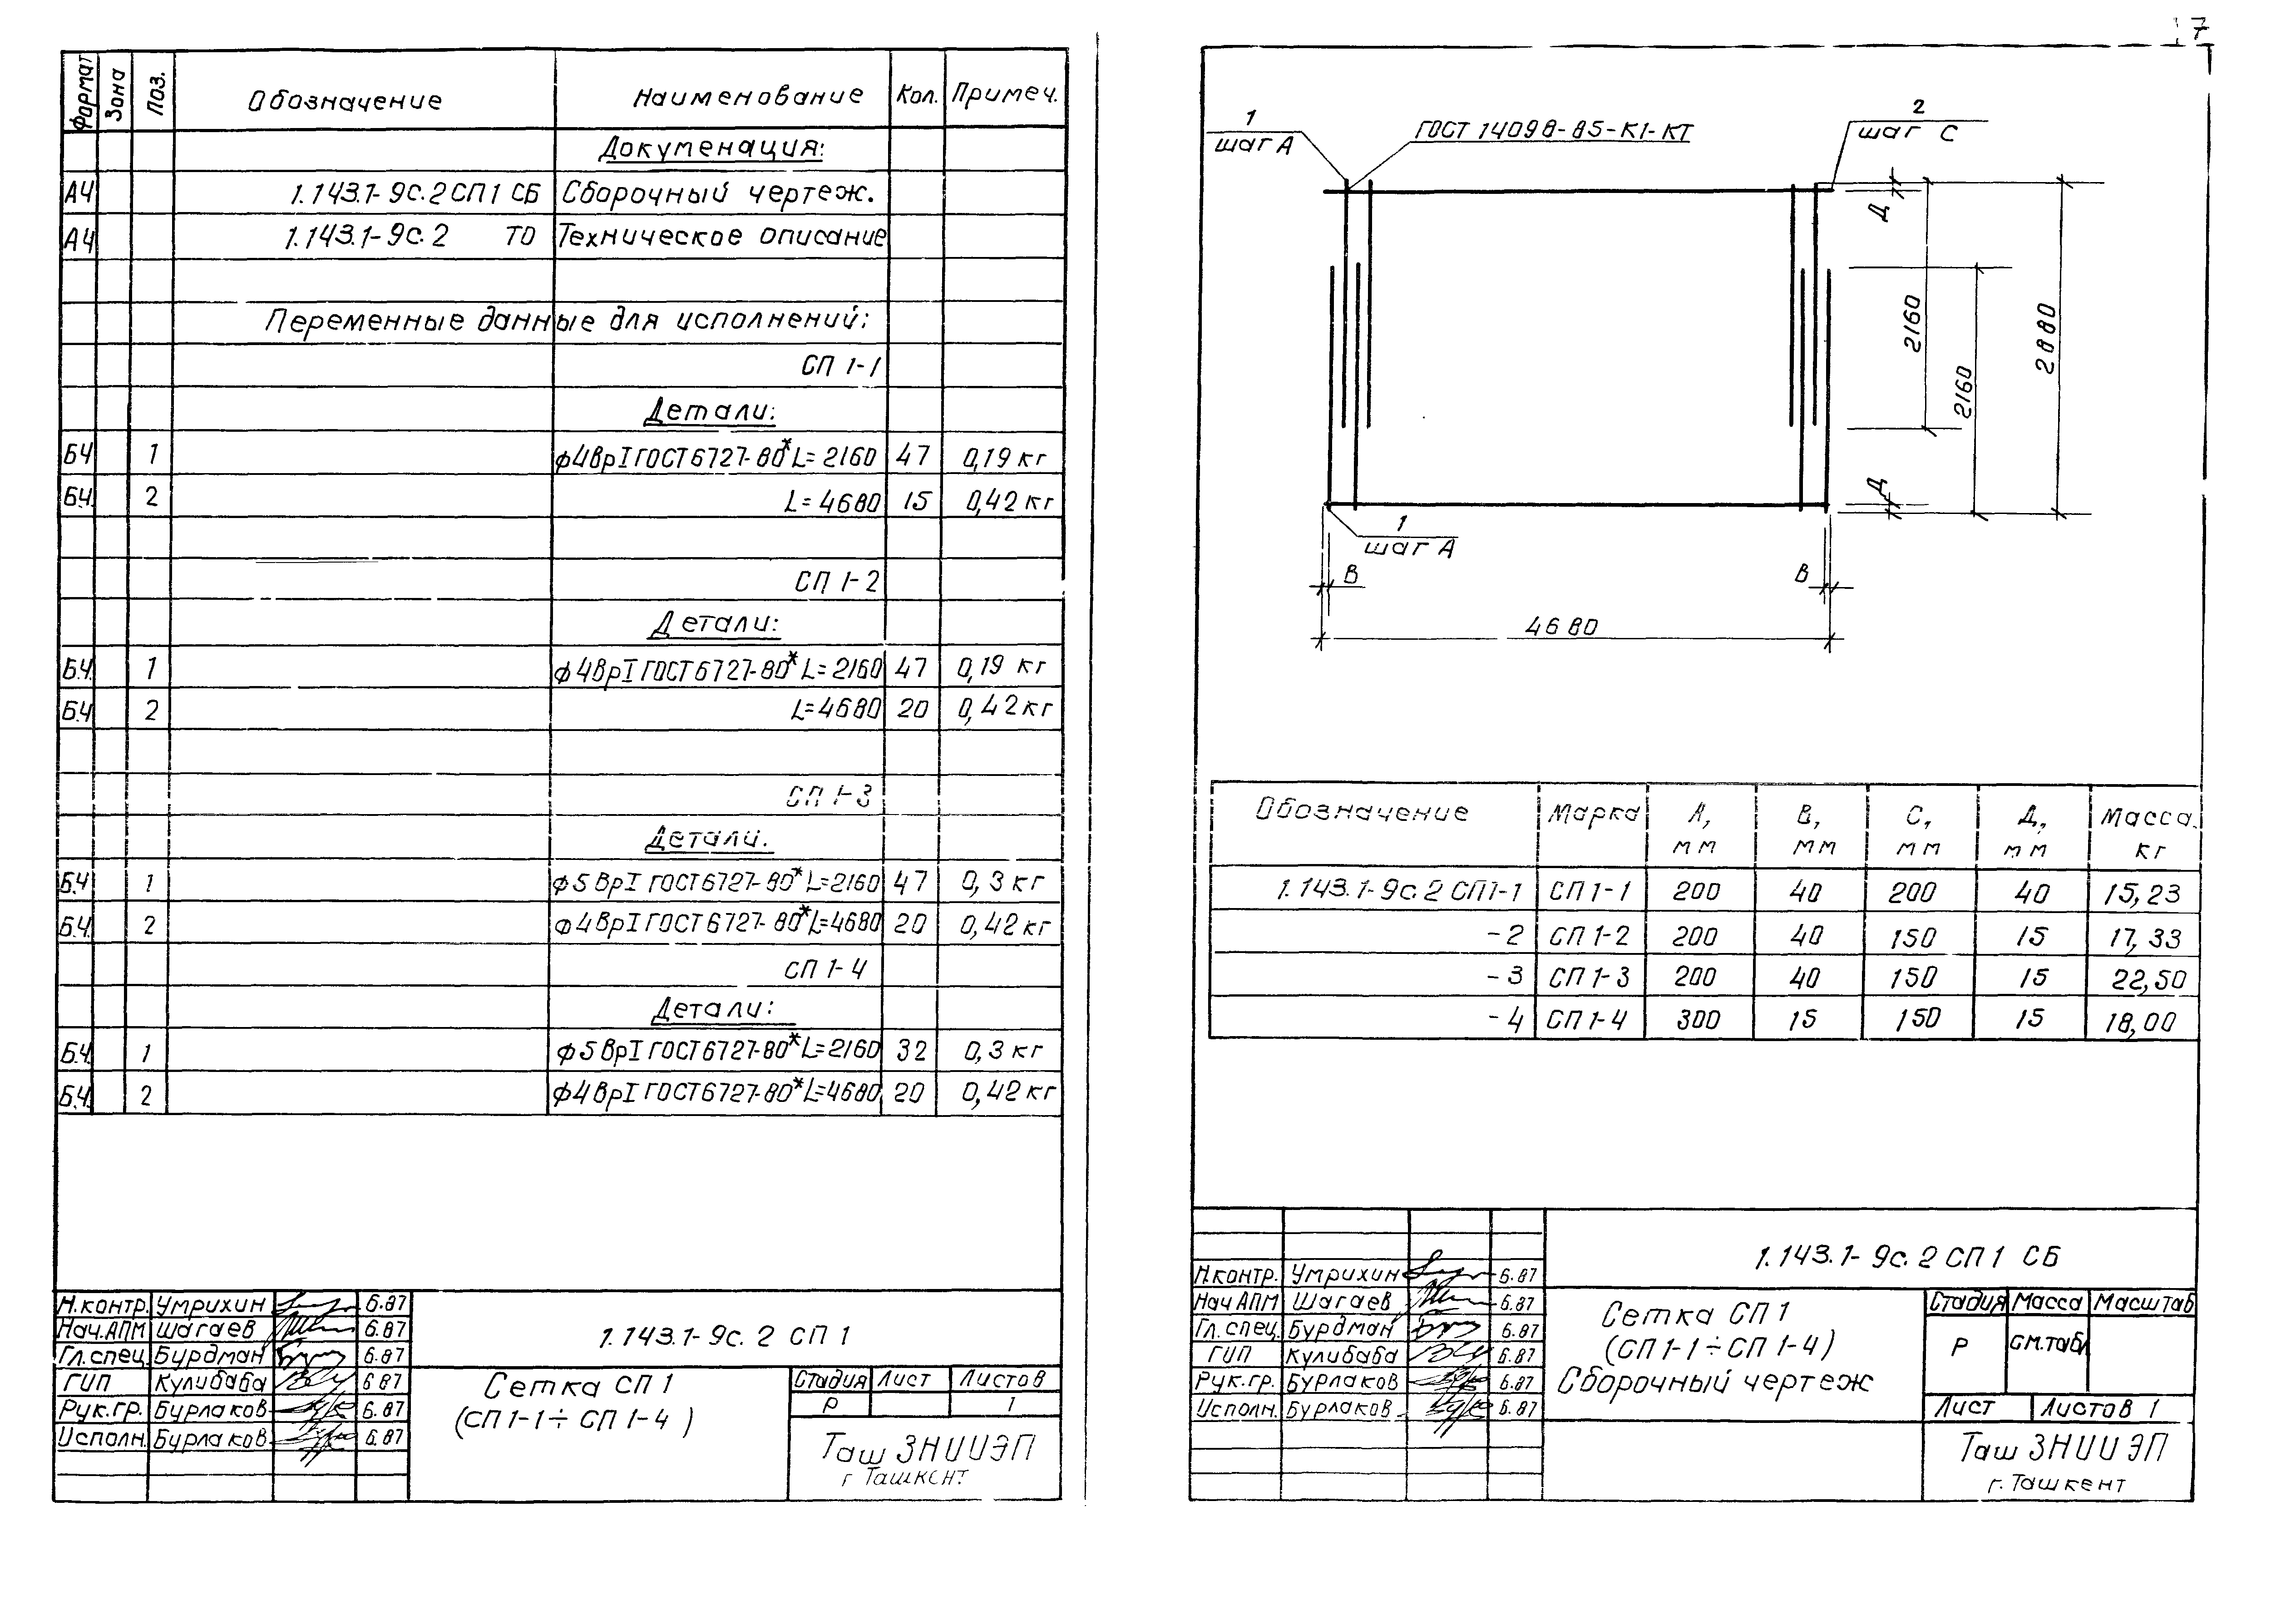 17
Формат Зона Поз. Обозначение Наименование Кол. Примеч.
Документация:
А4 1.143.1-9с.2 СП1 СБ Сборочный чертеж.
А4 1.143.1-9с.2 ТО Техническое описание
Переменные данные для исполнений:
СП 1-1
Детали:
БЧ 1 ф4ВрI ГОСТ 6727-80* L=2160 47 0,19 кг
БЧ. 2 L=4680 15 0,42 кг
СП 1-2
Детали:
БЧ. 1 ф4ВрI ГОСТ 6727-80* L=2160 47 0,19 кг
БЧ. 2 L=4680 20 0,42 кг
СП 1-3
Детали.
БЧ 1 ф5ВрI ГОСТ 6727-80* L=2160 47 0,3 кг
БЧ. 2 ф4ВрI ГОСТ 6727-80* L=4680 20 0,42 кг
СП 1-4
Детали:
БЧ. 1 ф5ВрI ГОСТ 6727-80* L=2160 32 0,3 кг
БЧ. 2 ф4ВрI ГОСТ 6727-80* L=4680 20 0,42 кг
Н.контр. Умрихин 6.87
Нач.АПМ Шагаев 6.87
Гл.спец. Бурдман 6.87
ГИП Кулибаба 6 87
Рук.гр. Бурлаков 6.87
Исполн. Бурлаков 6.87
1.143.1-9с.2 СП 1
Сетка СП 1
(СП 1-1÷СП 1-4)
Стадия Лист Листов
Р 1
Таш ЗНИИЭП
г Ташкент.
1
шаг А
ГОСТ 14098-85-К1-КТ
2
шаг С
Д
2160
2160
2880
Д
1
шаг А
В
В
4680
Обозначение Марка А, мм В, мм С, мм Д, мм Масса, кг
1.143.1-9с.2 СП1-1 СП 1-1 200 40 200 40 15,23
-2 СП 1-2 200 40 150 15 17,33
-3 СП 1-3 200 40 150 15 22,50
-4 СП 1-4 300 15 150 15 18,00
Н.контр. Умрихин 6.87
Нач АПМ Шагаев 6.87
Гл.спец. Бурдман 6.87
ГИП Кулибаба 6.87
Рук.гр. Бурлаков 6.87
Исполн. Бурлаков 6.87
1.143.1-9с.2 СП 1 СБ
Сетка СП 1
(СП 1-1÷СП 1-4)
Сборочный чертеж
Стадия Масса Масштаб
Р см.табл
Лист Листов 1
Таш ЗНИИЭП
г.Ташкент